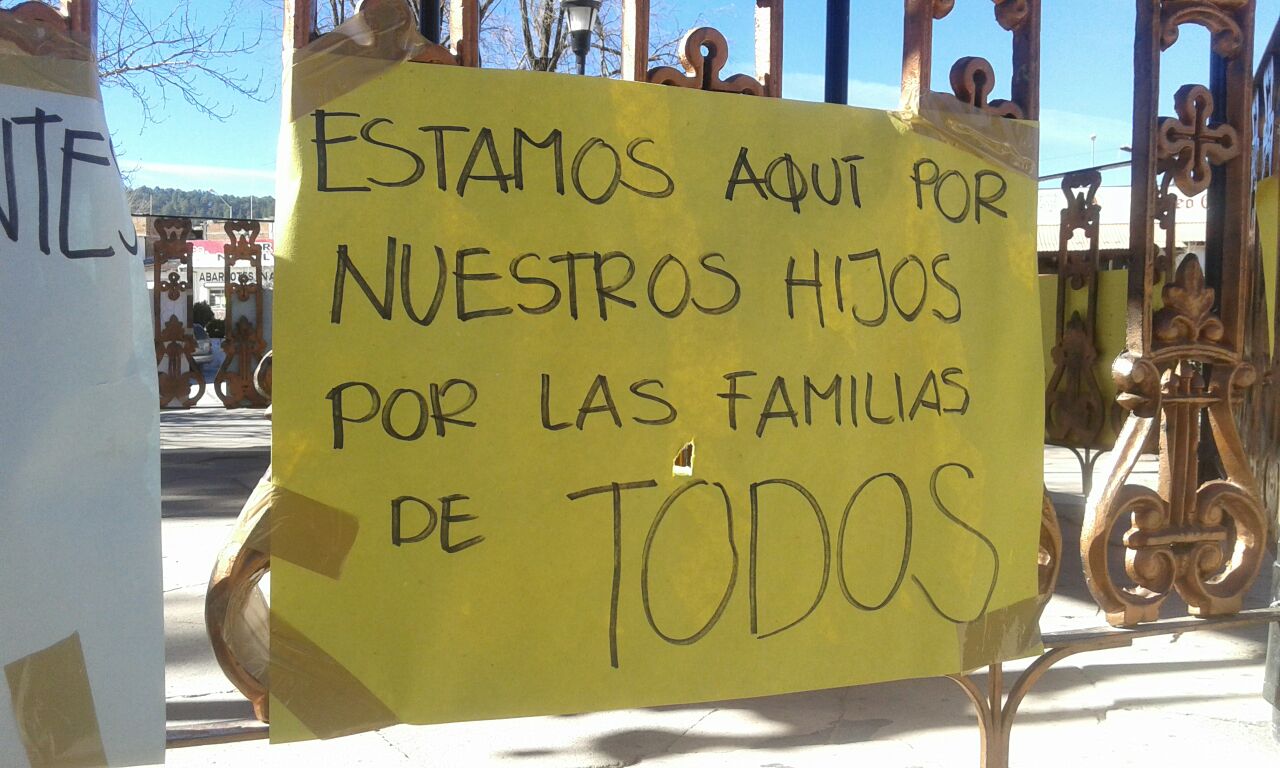 ESTAMOS AQUÍ POR
NUESTROS HIJOS
POR LAS FAMILIAS
DE TODOS
NTES
ABARROTES